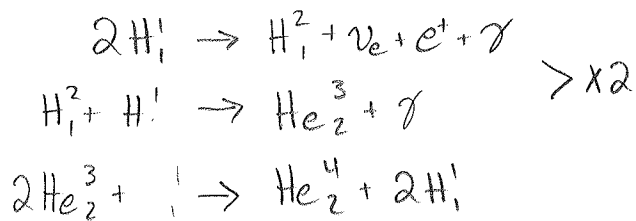 2H₁¹ → H₁² + νₑ + e⁺ + γ
H₁² + H¹ → He₂³ + γ > x2
2He₂³ + ₁¹ → He₂⁴ + 2H₁¹